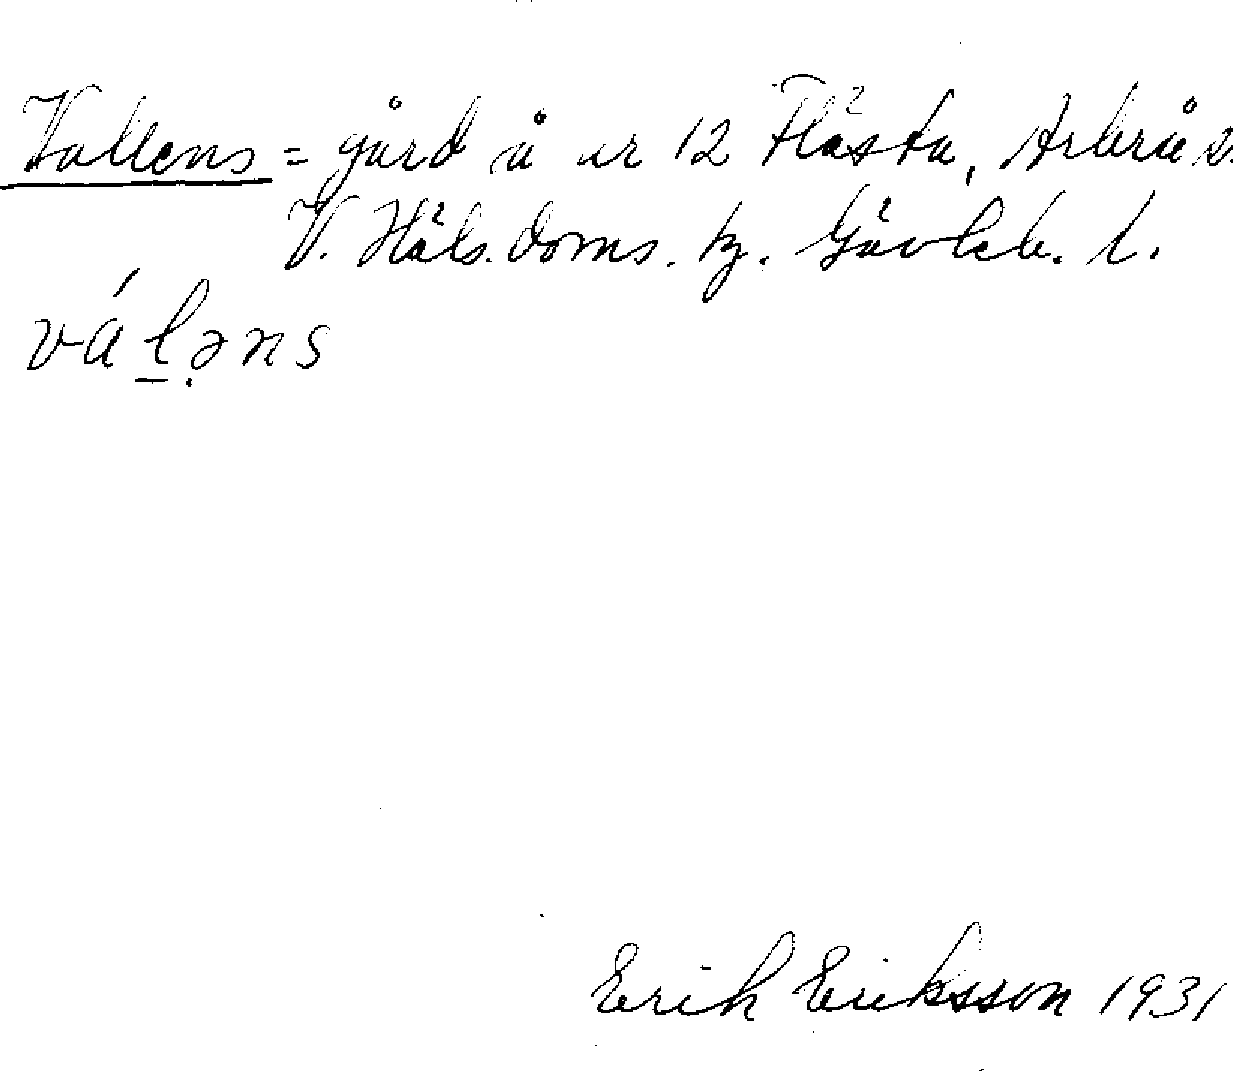 Vallens = gård å nr 12 Flästa, Arbrå s.
V. Häls. doms. tg. Gävleb. l.
váḻəns
Erik Eriksson 1931